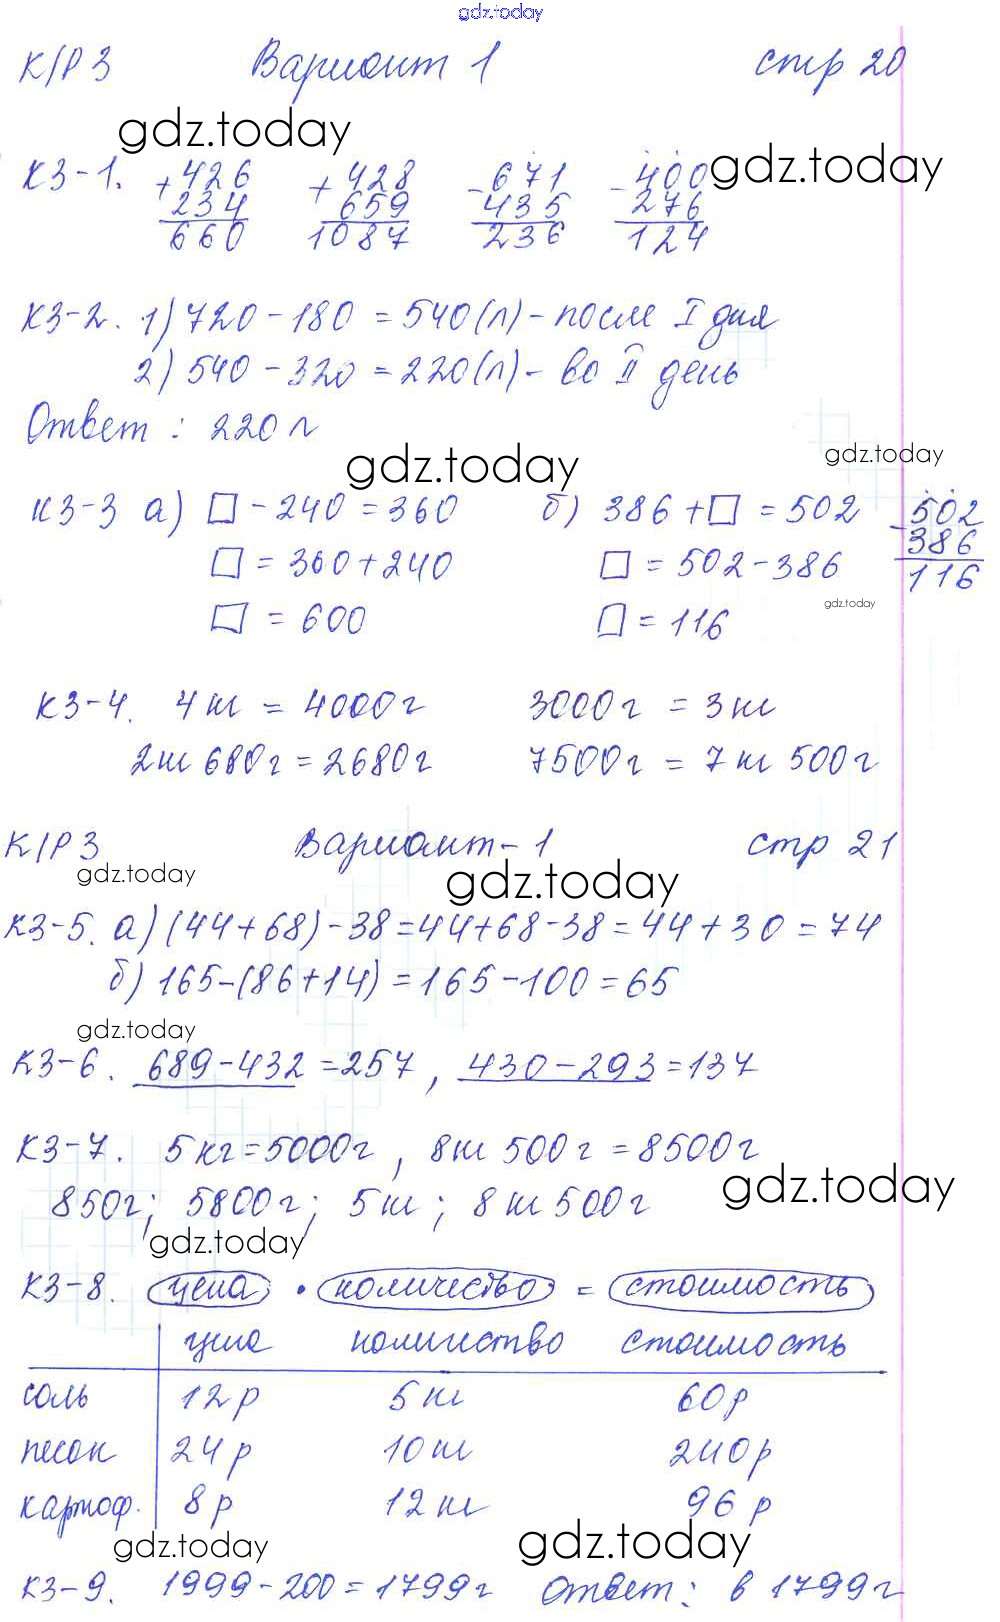 gdz.today
К/Р 3 Вариант 1 стр 20
gdz.today
К3-1. +426 +428 -671 -400 gdz.today
234 659 435 276
660 1087 236 124
К3-2. 1) 720-180 = 540(л)- после I дня
2) 540-320 = 220(л)- во II день
Ответ : 220 л
gdz.today gdz.today
К3-3 а) □ - 240 = 360 б) 386 + □ = 502 -502
□ = 360+240 □ = 502-386 386
□ = 600 □ = 116 116
gdz.today
К3-4. 4 кг = 4000г 3000г = 3 кг
2кг 680г = 2680г 7500г = 7 кг 500г
К/Р 3 Вариант-1 стр 21
gdz.today gdz.today
К3-5. а) (44+68)-38=44+68-38=44+30=74
б) 165-(86+14)=165-100=65
gdz.today
К3-6. 689-432=257, 430-293=137
К3-7. 5кг=5000г, 8кг 500г=8500г
850г; 5800г; 5кг; 8кг 500г
gdz.today
gdz.today
К3-8. цена · количество = стоимость
цена количество стоимость
соль 12р 5 кг 60р
песок 24р 10 кг 240р
картоф. 8р 12 кг 96 р
gdz.today gdz.today
К3-9. 1999-200=1799г Ответ: в 1799г